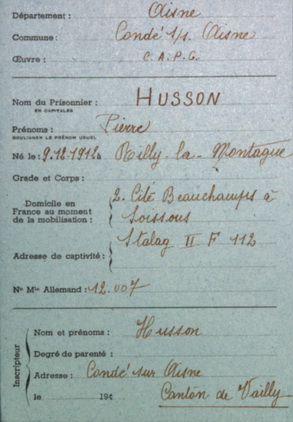 Département : Aisne
Commune : Condé s/s Aisne
Œuvre : C.A.P.G.
Nom du Prisonnier : HUSSON
EN CAPITALES
Prénoms : Pierre
SOULIGNER LE PRÉNOM USUEL
Né le : 9.12.1912 à Rilly-la-Montagne
Grade et Corps :
Domicile en France au moment de la mobilisation : 2. Cité Beauchamps à
Soissons
Stalag II F 112
Adresse de captivité :
No Mle Allemand : 12.007
Inscripteur
Nom et prénoms : Husson
Degré de parenté :
Adresse : Condé sur Aisne
le 194 Canton de Vailly